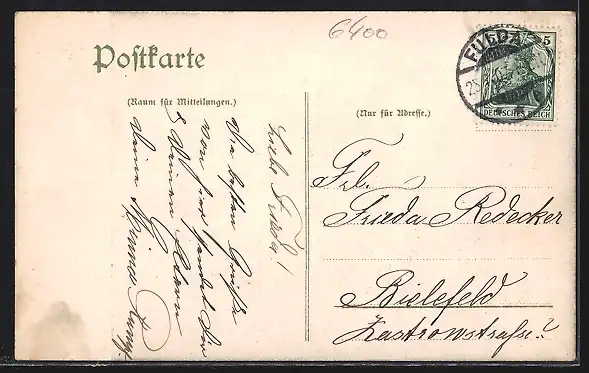 6400
Postkarte
(Raum für Mitteilungen.)
(Nur für Adresse.)
FULDA
25
5
DEUTSCHES REICH
Liebe Frieda!
Die besten Grüße
von hier sendet Dir
& deinen Eltern
deine Minna
Frl.
Frieda Redecker
Bielefeld
Zastrowstraße?